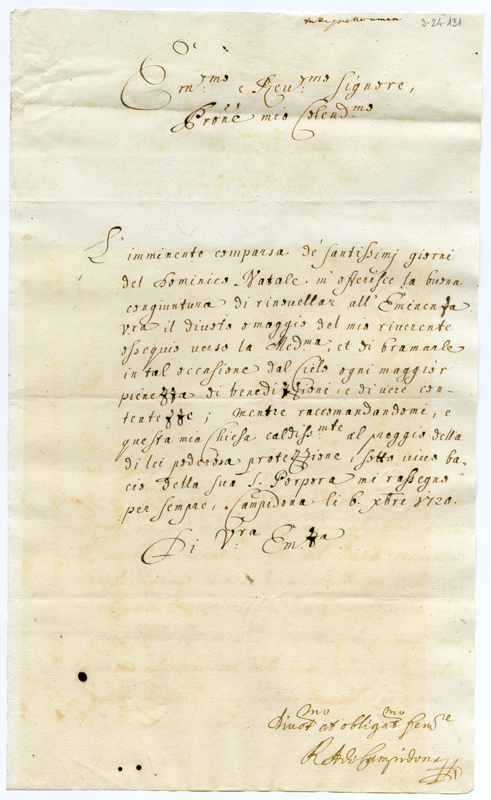 3-24-131
Em.mo e Reu.mo Signore,
Prōne mio Colend.mo
L'imminente comparsa de' santissimj giorni
del Dominico Natale m'offerisce la buona
congiuntura di rinouellar all'Eminenza
Vra il diuoto omaggio del mio riuerente
ossequio uerso la Med.ma, et di bramarle
in tal occasione dal Cielo ogni maggior
pienezza di benedizzioni, e di uere con-
tentezze; mentre raccomandandomi, e
questa mia Chiesa caldiss.mte al preggio della
di lei poderosa protezzione, sotto uiuo ba-
cio della sua S. Porpora mi rassegno
per sempre, Campidona li 6. xbre 1720.
Di V.ra Em.za
Diuot.mo et obligat.mo Seru.re
R. Ab di Campidona